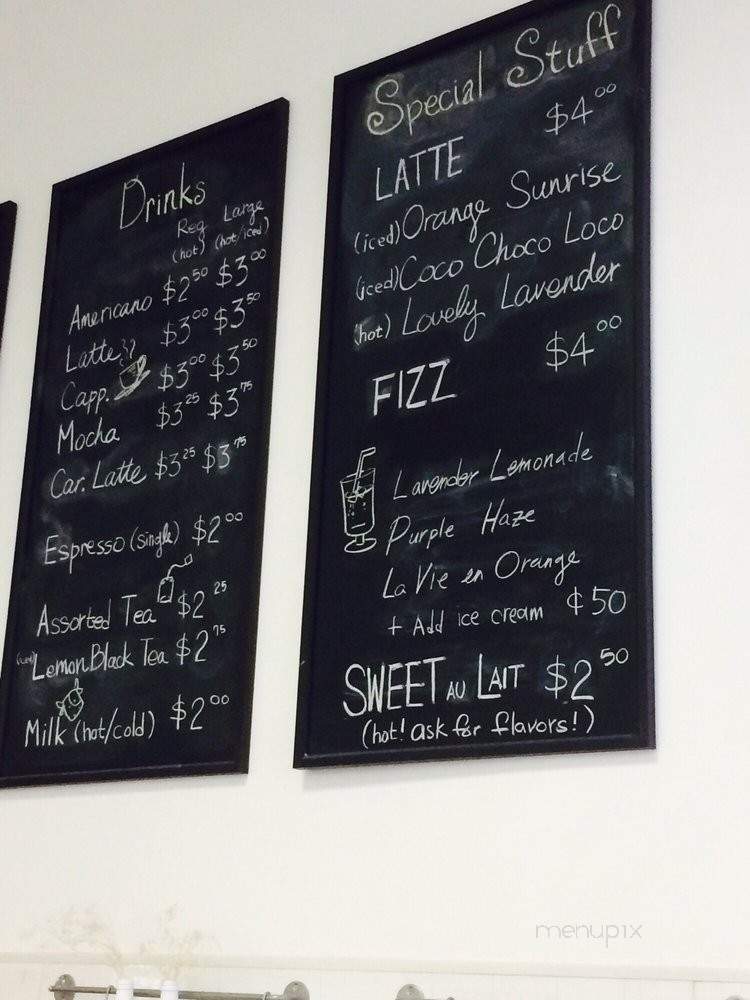 Drinks
Reg Large
(hot) (hot/iced)
Americano $2.50 $3.00
Latte $3.00 $3.50
Capp. $3.00 $3.50
Mocha $3.25 $3.75
Car. Latte $3.25 $3.75
Espresso (single) $2.00
Assorted Tea $2.25
(iced) Lemon Black Tea $2.75
Milk (hot/cold) $2.00
Special Stuff
LATTE $4.00
(iced) Orange Sunrise
(iced) Coco Choco Loco
(hot) Lovely Lavender
FIZZ $4.00
Lavender Lemonade
Purple Haze
La Vie en Orange
+ Add ice cream ¢50
SWEET AU LAIT $2.50
(hot! ask for flavors!)
menupix